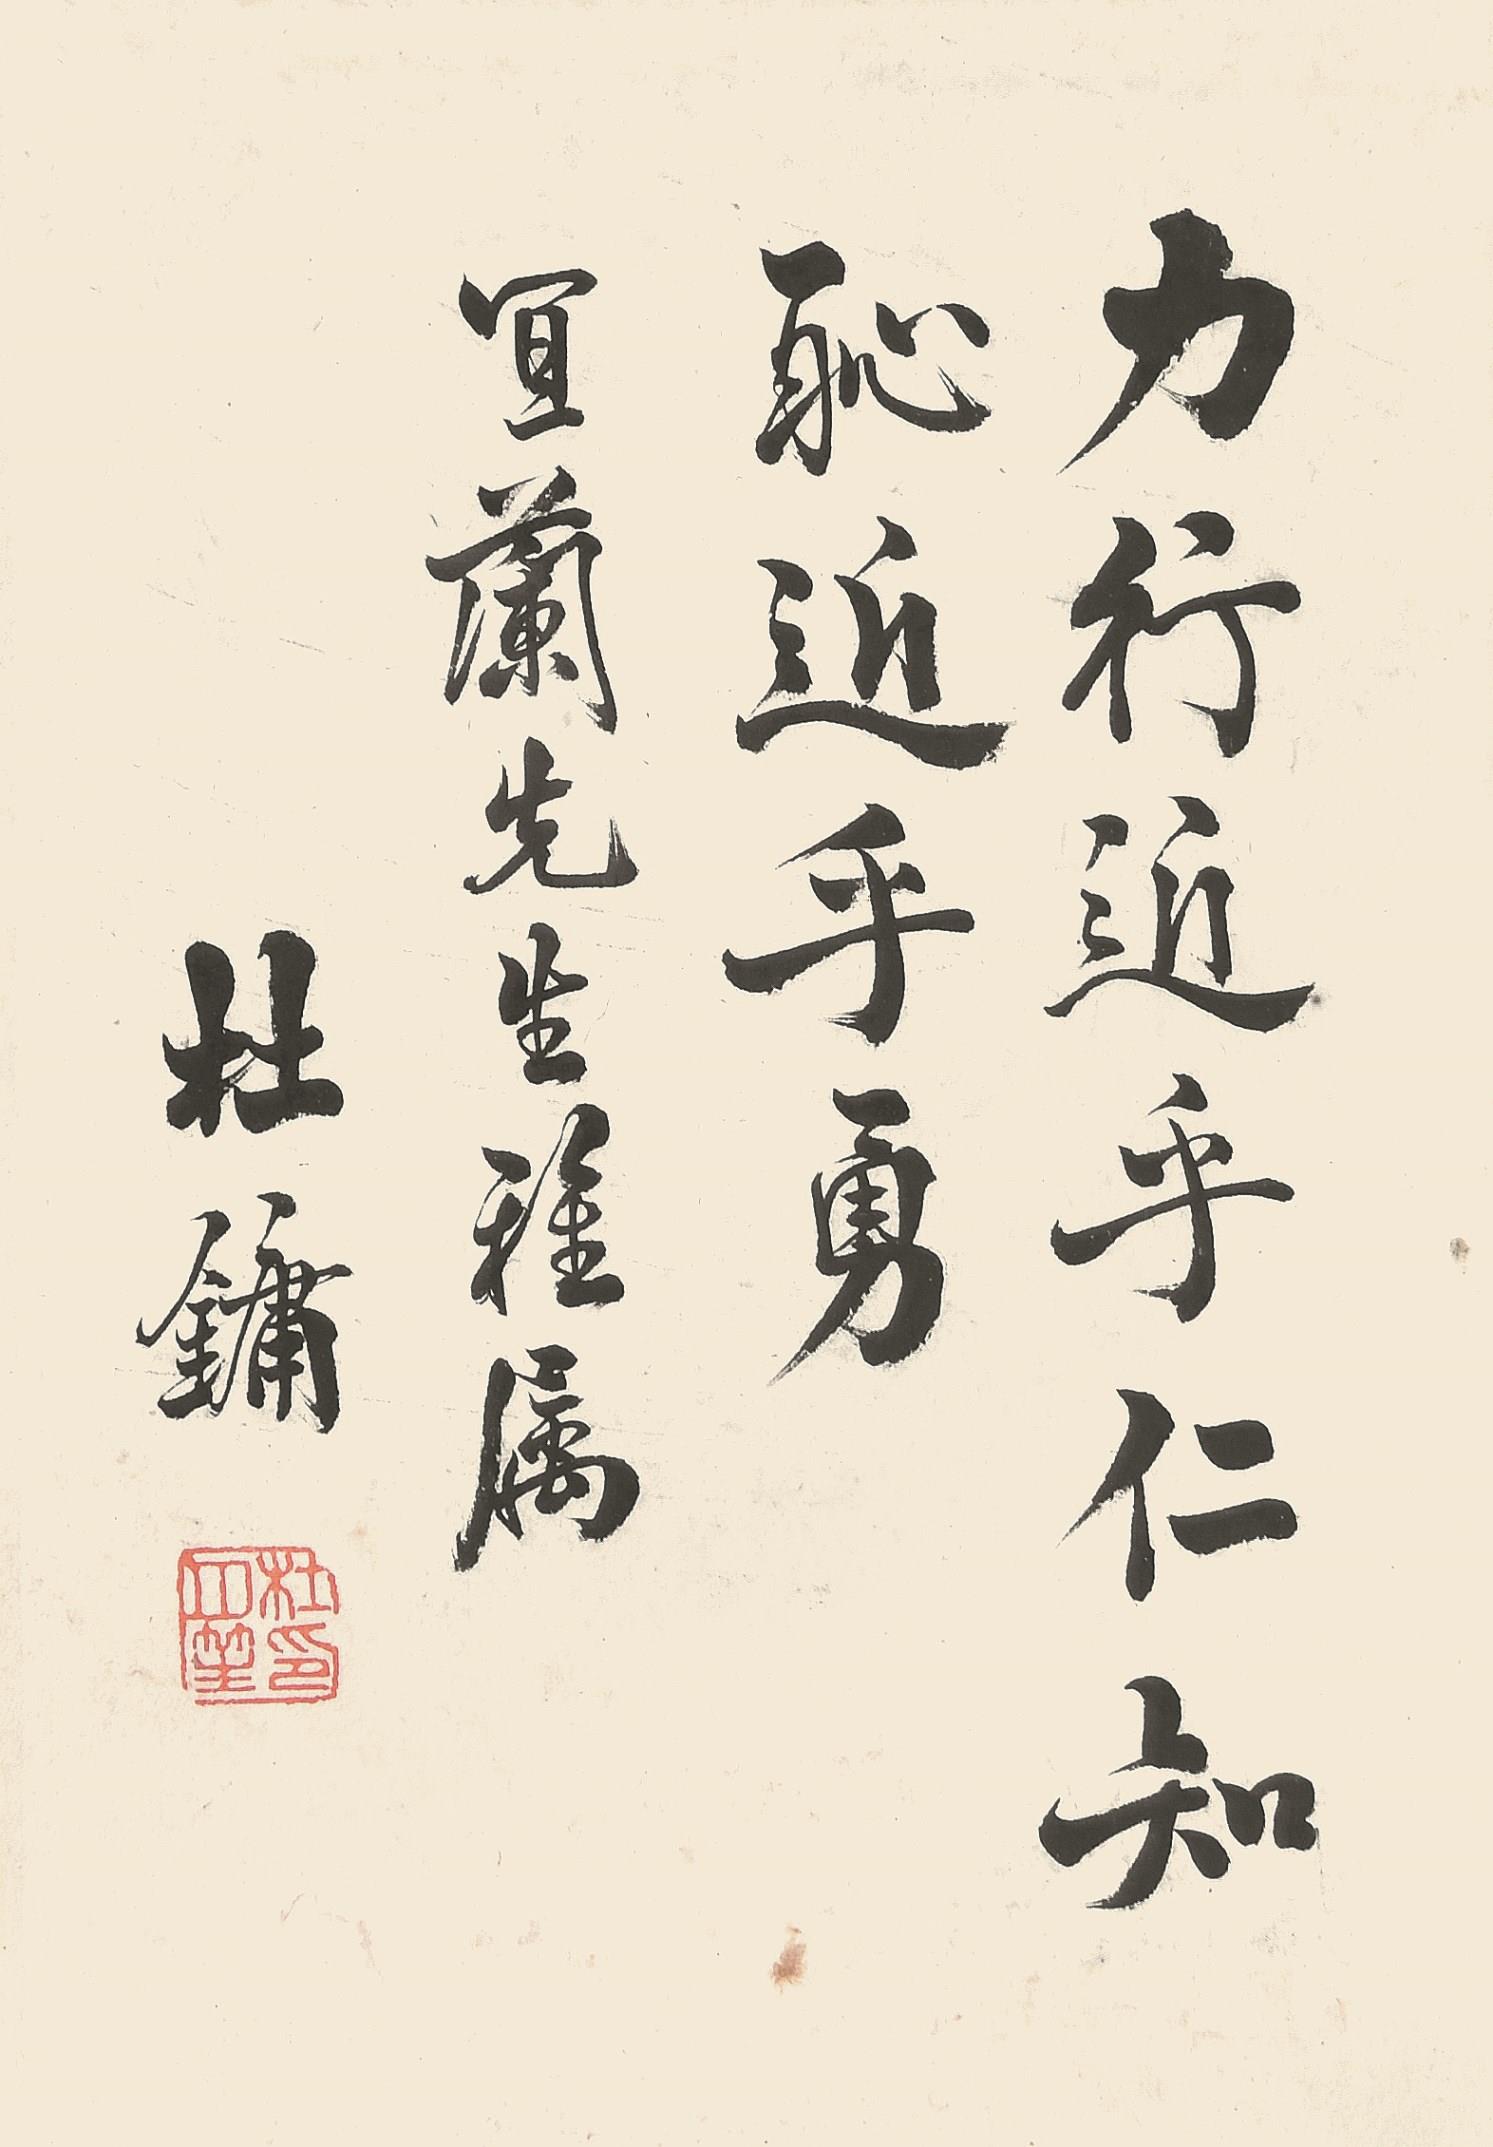 力行近乎仁知
恥近乎勇
宜蘭先生雅属
杜鏞
杜月笙印